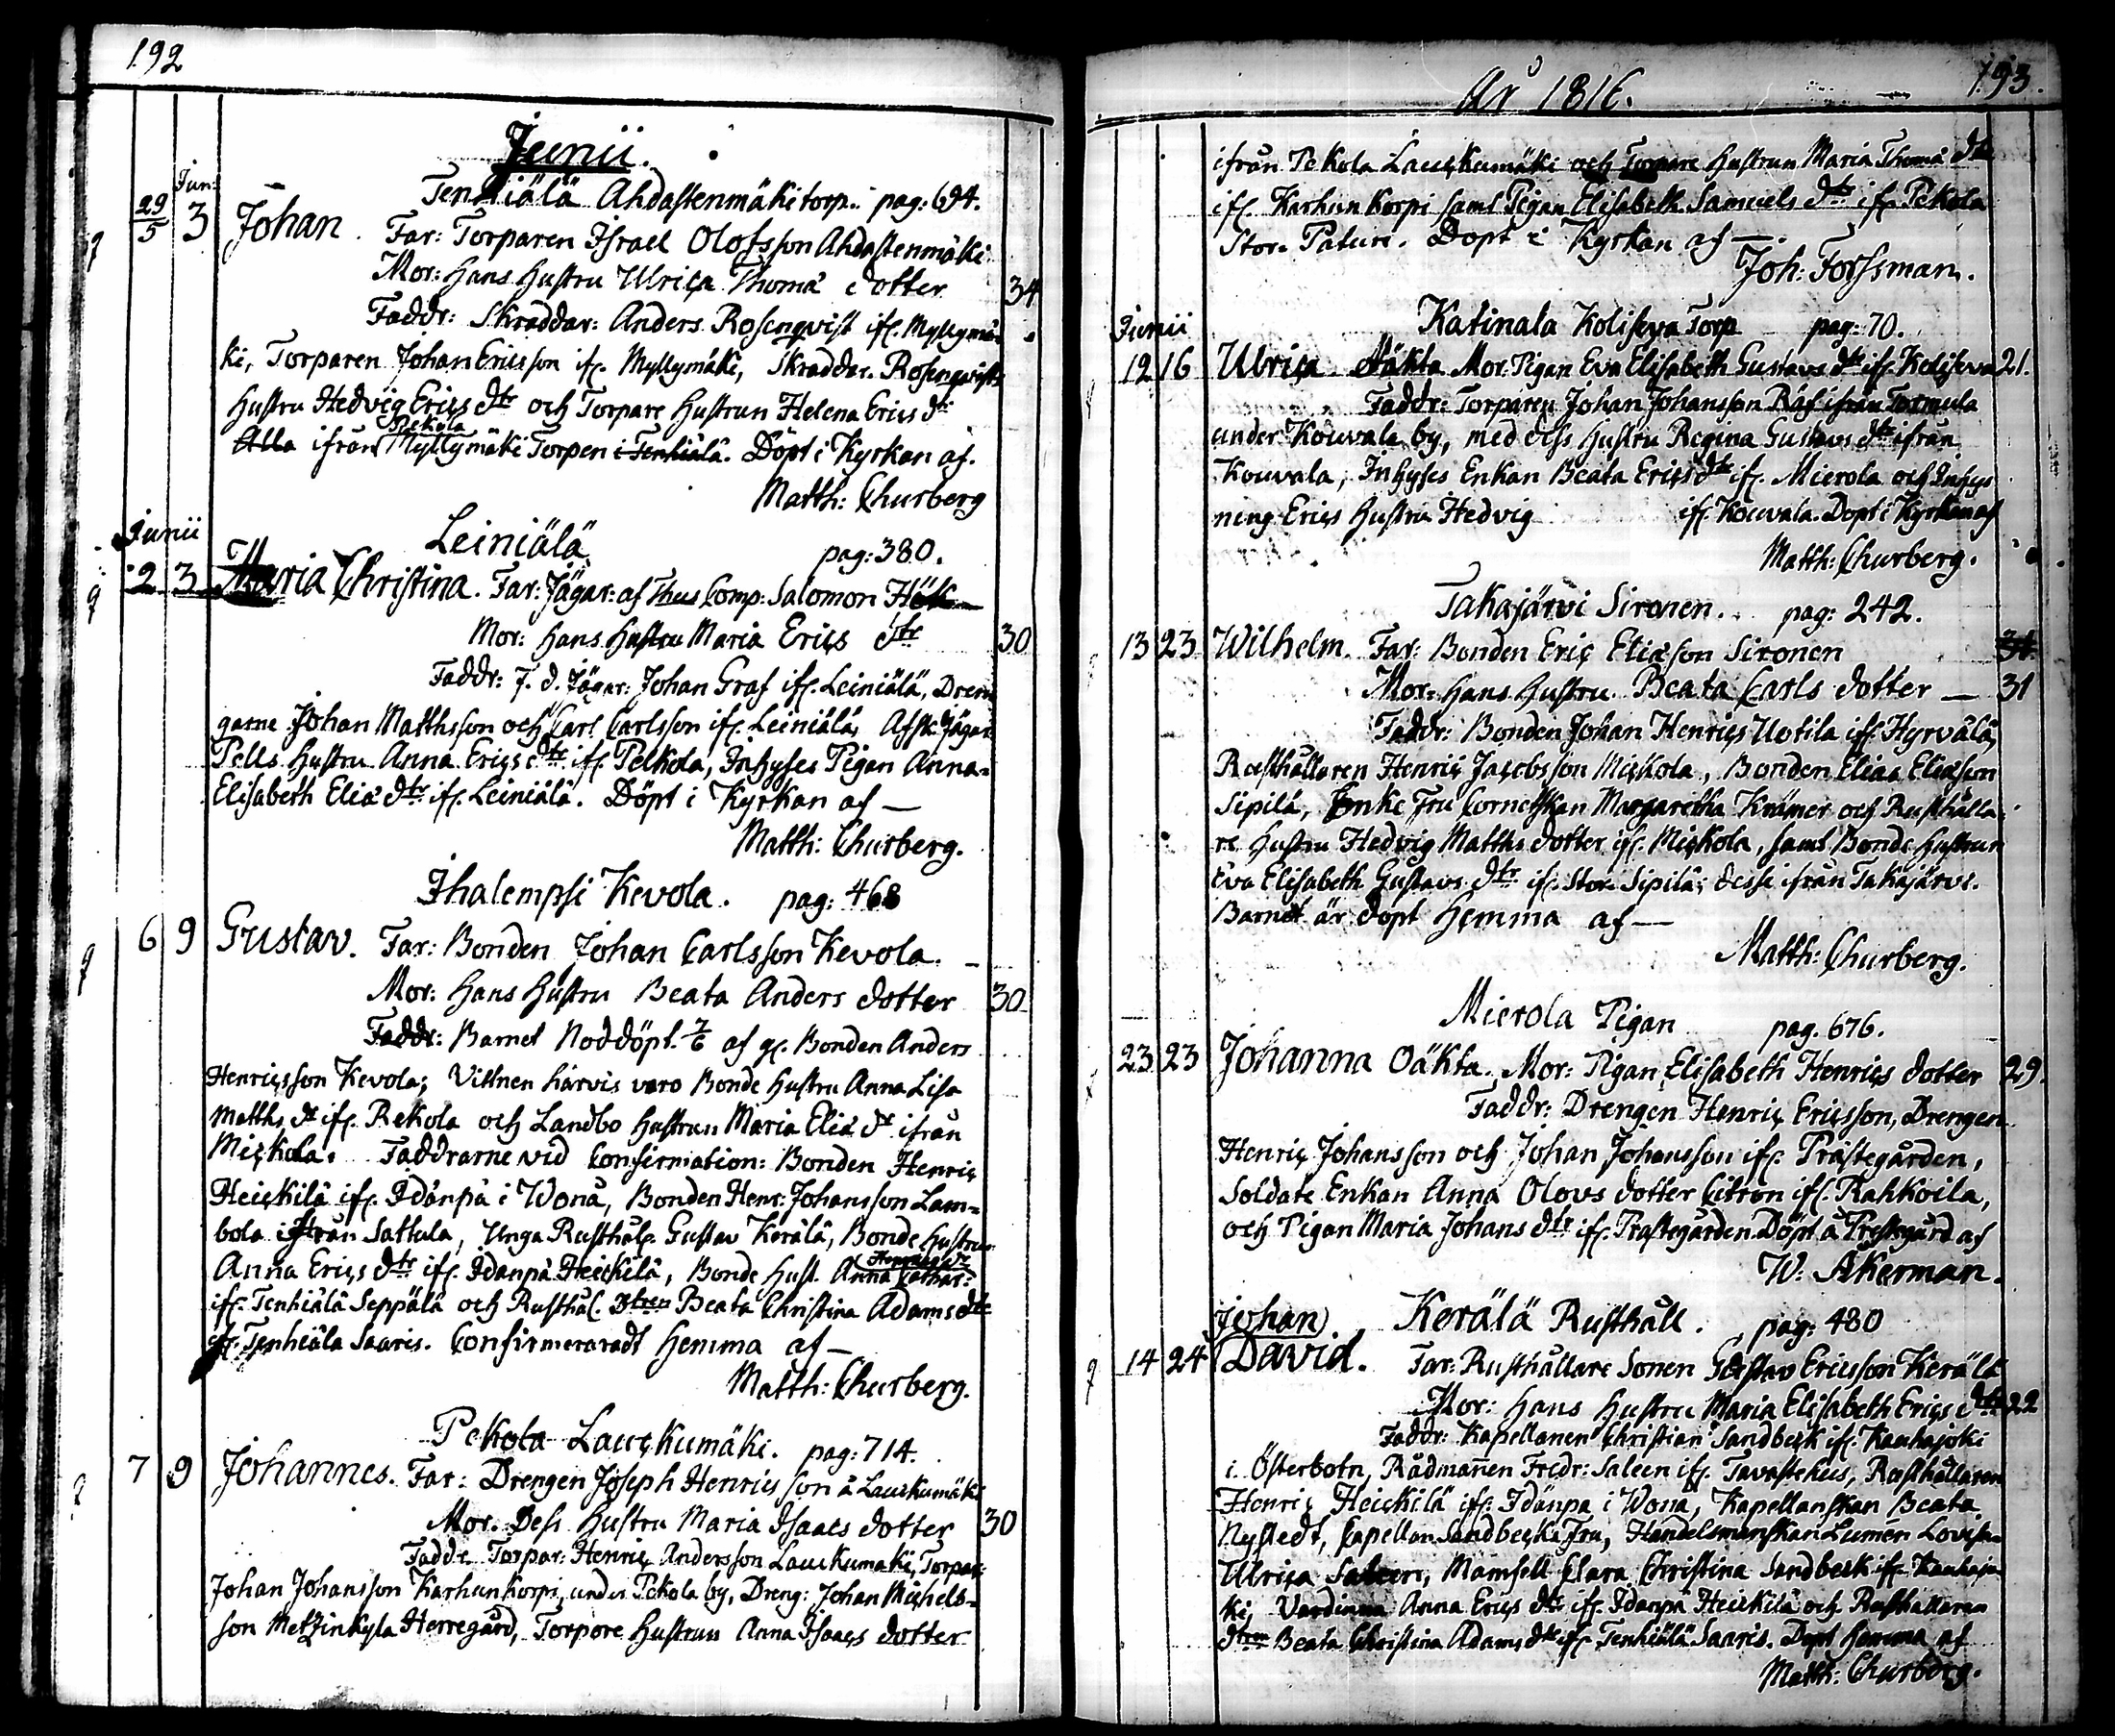 192
Junii.
Tenhiälä Ahdastenmäki torp. pag: 694.
Jun:
29/5 3 Johan. Far: Torparen Israel Olofsson Ahdastenmäki
Mor: Hans Hustru Ulrica Thomæ dotter 34
Faddr: Skräddar: Anders Rosenqvist ifr. Myllymä-
ki, Torparen Johan Ericsson ifr. Myllymäki, Skräddar. Rosenqvists
Hustru Hedvig Erics dtr och Torpare Hustrun Helena Erics dr
Alla ifrån Pekola Myllymäki Torpen i Tenhiälä. Döpt i Kyrkan af.
Matth: Churberg
Junii
Leiniälä pag: 380.
2 3 Maria Christina. Far: Jägar: af Thus Comp: Salomon Hök
Mor: Hans Hustru Maria Erics dtr 30
Faddr: f. d. Jägar: Johan Graf ifr. Leiniälä, Dren
garne Johan Matthsson och Carl Carlsson ifr. Leiniälä, Afsk. Jägar
Pells Hustru Anna Erics dtr ifr. Pelkola, Inhyses Pigan Anna-
Elisabeth Eliæ dtr ifr. Leiniälä. Döpt i Kyrkan af —
Matth: Churberg.
Ihalempsi Kevola. pag: 468
6 9 Gustav. Far: Bonden Johan Carlsson Kevola.
Mor: Hans Hustru Beata Anders dotter 30
Faddr: Barnet Nöddöpt 7/6 af gl. Bonden Anders
Henricsson Kevola; Vittnen härvis voro Bonde Hustru Anna Lisa
Matths dr ifr. Rekola och Landbo Hustrun Maria Eliæ dr ifrån
Mickola. Faddrarne vid Confirmation: Bonden Henric
Heickilä ifr. Idänpä i Wonå, Bonden Henr: Johansson Lam-
bola ifrån Sattula, Unga Rusthål. Gustav Kerälä, Bonde Hustrun
Anna Erics dtr ifr. Idänpä Heickilä, Bonde Hust. Anna Cathar:
ifr. Tenhiälä Seppälä och Rusthål. Dtren Beata Christina Adams dtr
ifr. Tenhiälä Saaris. Confirmeradt Hemma af —
Matth: Churberg.
Pekola Lauckumäki. pag: 714.
7 9 Johannes. Far: Drengen Joseph Henricsson å Lauckumäki
Mor. Dess Hustru Maria Isaacs dotter 30
Faddr. Torpar: Henric Andersson Lauckumäki, Torpar:
Johan Johansson Karhunkorpi, under Pekola by, Dreng: Johan Michels-
son Metzinkyla Herregård, Torpare Hustrun Anna Isaacs dotter
År 1816. 193.
ifrån Pekola Lauckumäki och Torpare Hustrun Maria Thomæ dtr
ifr. Karhunkorpi samt Pigan Elisabeth Samuels dtr ifr. Pekola
Stor. Paturi. Döpt i Kyrkan af —.
Joh: Forssman.
Junii
Katinala Koliseva Torp pag: 70.
12 16 Ulrica Oäkta Mor. Pigan Eva Elisabeth Gustavs dtr ifr. Koliseva 21.
Faddr: Torparen Johan Johansson Räf ifrån Tormula
under Kouvala by, med dess Hustru Regina Gustavs dtr ifrån
Kouvala, Inhyses Enkan Beata Erics dtr ifr. Mierola och Inhys
ning Erics Hustru Hedvig ifr. Kouvala. Döpt i Kyrkan af
Matth: Churberg.
Takajärvi Sironen. pag: 242.
13 23 Wilhelm. Far: Bonden Eric Eliæson Sironen 34
Mor: Hans Hustru Beata Carls dotter — 31
Faddr: Bonden Johan Henrics Uotila ifr. Hyrvälä,
Rusthållaren Henric Jacobsson Mickola, Bonden Elias Eliæson
Sipilä, Enke Fru Cornettskan Margaretha Krämer och Rusthålla-
re Hustru Hedvig Matths dotter ifr. Mickola, samt Bonde Hustrun
Eva Elisabeth Gustavs dtr ifr. Stor. Sipilä; desse ifrån Takajärvi.
Barnet är döpt Hemma af —
Matth: Churberg.
Mierola Pigan pag. 676.
23 23 Johanna Oäkta. Mor: Pigan Elisabeth Henrics dotter 29.
Faddr: Drengen Henric Ericsson, Drengen
Henric Johansson och Johan Johansson ifr. Prästegården,
Soldate Enkan Anna Olovs dotter Citron ifr. Rahkoila,
och Pigan Maria Johans dtr ifr. Prästegården. Döpt å Prestegård af
W: Åkerman.
Johan Kerälä Rusthåll. pag: 480
14 24 David. Far: Rusthållare Sonen Gustav Ericsson Kerälä
Mor: Hans Hustru Maria Elisabeth Erics dtr 22
Faddr: Kapellanen Christian Sandbeck ifr. Kauhajoki
i Österbotn, Rådmannen Fredr: Saleen ifr. Tavastehus, Rusthållaren
Henric Heickilä ifr. Idänpä i Wonå, Kapellanskan Beata
Nystedt, Capellan Sandbecks Fru, Handelsmanskan Lumen Lovisa
Ulrica Saleen, Mamsell Clara Christina Sandbeck ifr. Kauhajo-
ki, Värdinna Anna Erics dtr ifr. Idänpä Heickilä och Rusthållaren
Dtren Beata Christina Adams dtr ifr. Tenhiälä Saaris. Döpt hemma af
Matth: Churberg.